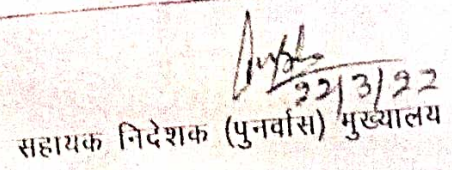 22/3/22
सहायक निदेशक (पुनर्वास) मुख्यालय